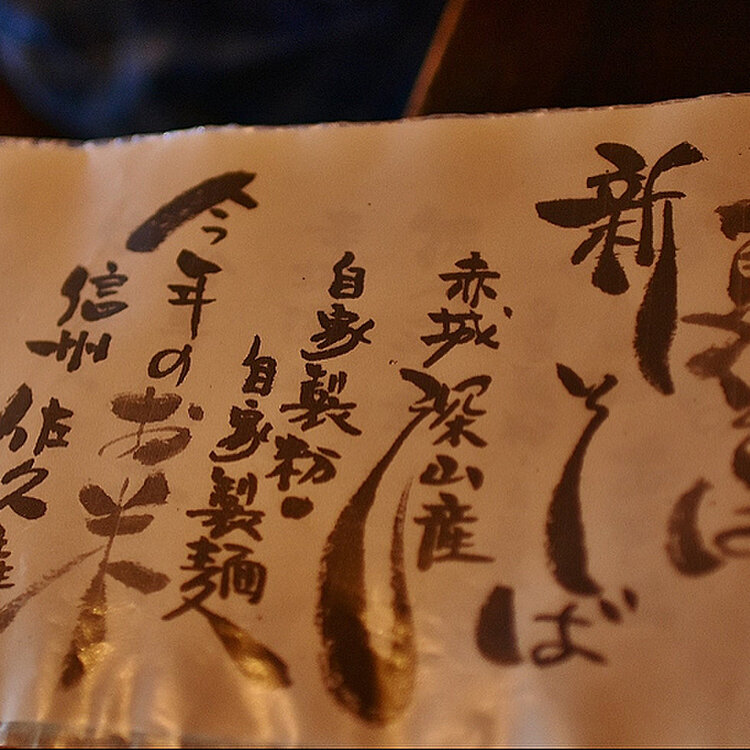 新そば
赤城深山産
自家製粉・
自家製麺
今年のお米
信州佐久産